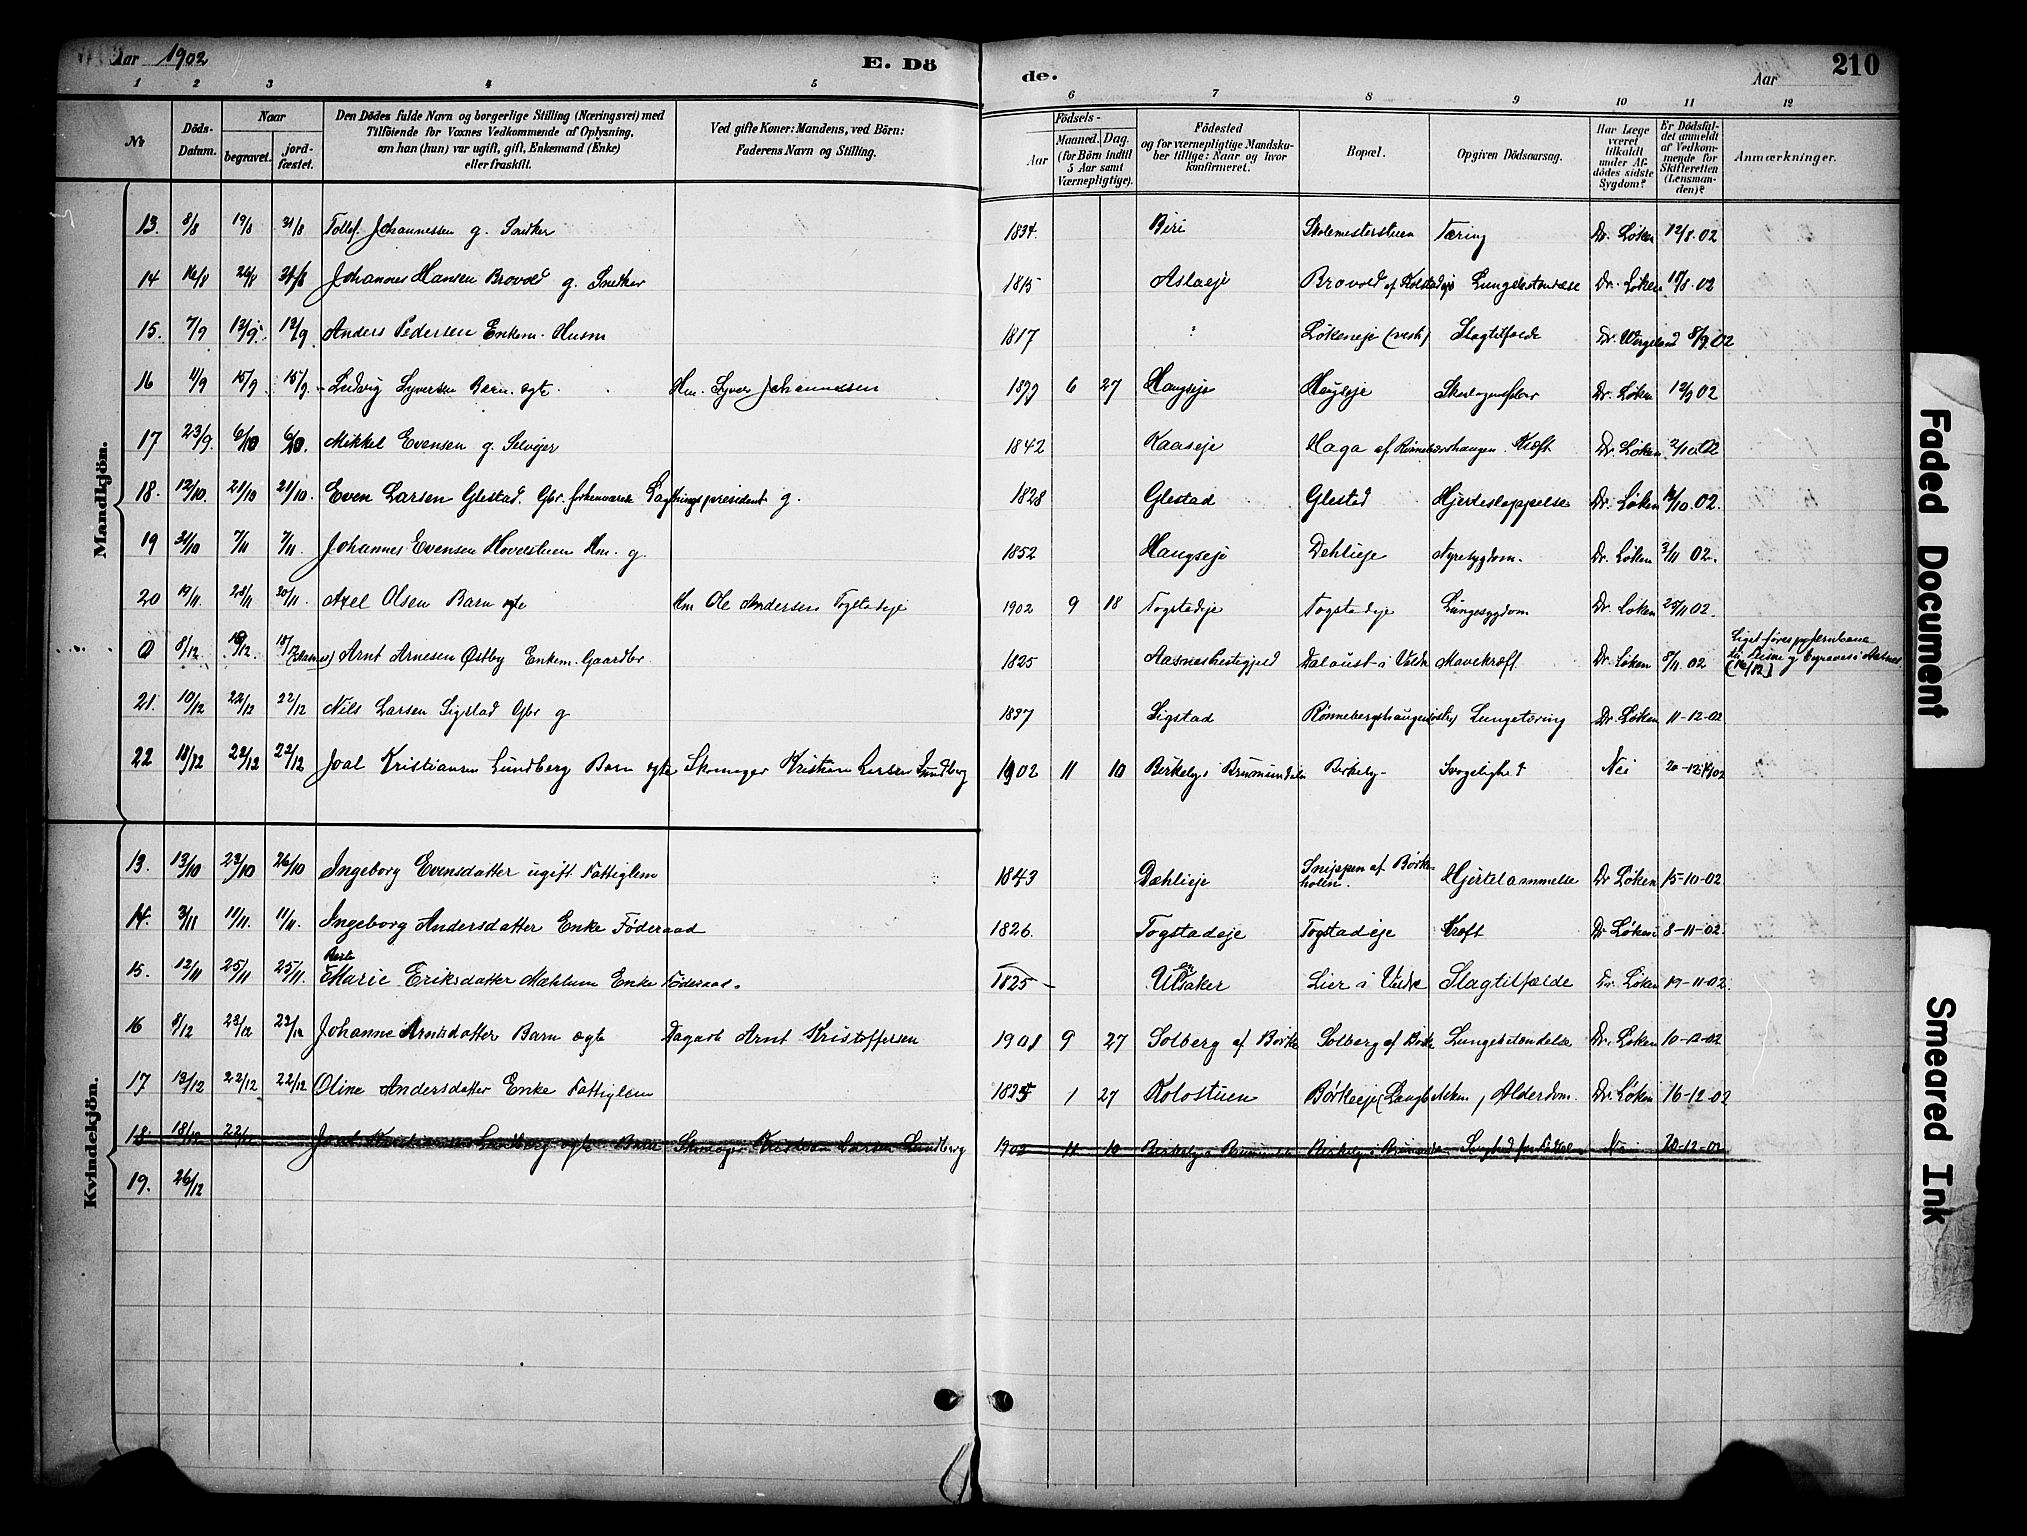 Aar 1902 E. Dö de. Aar 210
1 2 3 4 5 6 7 8 9 10 11 12
No
Döds-Datum.
Naar
begravet.
jord-fæstet.
Den Dödes fulde Navn og borgerlige Stilling (Næringsvei) med
Tilföiende for Voxnes Vedkommende af Oplysning,
om han (hun) var ugift, gift, Enkemand (Enke)
eller fraskilt.
Ved gifte Koner: Mandens, ved Börn:
Faderens Navn og Stilling.
Födsels-
Aar
Maaned. Dag.
(for Börn indtil
5 Aar samt
Værnepligtige).
Födested
og for værnepligtige Mandska-
ber tillige: Naar og hvor
konfirmeret.
Bopæl.
Opgiven Dödsaarsag.
Har Læge
været
tilkaldt
under Af-
dödes sidste
Sygdom?
Er Dödsfal-
det anmeldt
af Vedkom-
mende for
Skifteretten
(Lensman-
den)?
Anmærkninger.
Mandkjön.
13. 8/8 19/8 31/8 Tollef Johannessen g. Snedker 1834. Biri Skolemesterstuen Tæring Dr. Løken 12/8. 02
14 16/8 26/8 31/8 Johannes Hansen Brovold g. Snedker 1815 Aslaeje Brovold af Kolstadeje Lungebetændelse Dr. Løken 18/8. 02
15. 7/9 12/9. 12/9 Anders Pedersen Enkem. Husm 1817 ? Løkeneje (vestr) Slagtilfælde Dr. Wergeland 8/9 02
16 11/9 15/9 15/9 Ludvig Syversen Barn. ægte. Hm. Syver Johannessen 1899 6 27 Haugseje Haugseje Dr. Løken 12/9 02
17 23/9. 6/10 6/10. Mikkel Evensen g. Selvejer 1842 Kaaseje Haga af Rønnebergshaugen. Kræft Dr. Løken 2/10 02
18. 12/10. 21/10 21/10. Even Larsen Glestad. Gbr. forhenværende Lagthingspresident g. 1828 Glestad Glestad Hjerteslappelse Dr. Løken 14/10 02.
19 31/10 7/11 7/11. Johannes Evensen Hovelstuen Hm. g. 1852 Haugseje Dehlieje Nyresygdom. Dr. Løken 3/11 02.
20 19/11. 28/11 30/11. Axel Olsen Barn ægte Hm Ole Andersen Togstadeje 1902 9 18 Togstadeje Togstadeje Lungesygdom Dr. Løken 25/11 02.
0 8/12 18/12. 18/12 Arnt Arnesen Østby Enkem. Gaardbr. 1825 Aasnes Hestegjeld Dalaust i Valde Mavekræft Dr. Løken 8/11 02
21. 10/12 22/12 22/12 Nils Larsen Sigstad Gbr g 1837 Sigstad Rønnebergshaugen Lungetæring Dr. Løken 11-12-02
22 18/12 22/12 22/12 Joal Kristiansen Lundberg Barn ægte Skomager Kristian Larsen Lundberg 1902 11 10 Birkeby i Brumunddalen Birkeby - Svagelighed Nei 20-12-1902
Kvindekjön.
13. 13/10 23/10 26/10 Ingeborg Evensdatter ugift Fattiglem 1843 Dæhlieje Snippen af Børke- Hjertelammelse Dr Løken 15-10-02
14. 3/11 11/11. 11/11. Ingeborg Andersdatter Enke Føderaad 1826. Togstadeje Togstadeje Kræft Dr Løken 8-11-02.
15. 12/11 25/11 25/11. Marie Eriksdatter Mæhlum Enke Føderaad. 1825 - Ulsaker Lier i Vardal Slagtilfælde Dr. Løken 19-11-02.
16 8/12 23/12 22/12 Johanne Arntsdatter Barn ægte Dagarb Arnt Kristoffersen 1901 9 27 Solberg af Børke Solberg af Børke Lungebetændelse Dr. Løken 10-12-02
17 13/12 22/12 22/12 Oline Andersdatter Enke Fattiglem 1825 1 27 Kolostuen Børkeeje Alderdom. Dr. Løken 16-12-02
18 18/12 22/12 Joal Kristiansen Lundberg ægte Barn Skomager Kristian Larsen Lundberg 1902 11 10 Birkeby i Brumunddalen Birkeby i Brumunddalen Nei 20-12-02
19. 26/12
Faded Document
Smeared Ink